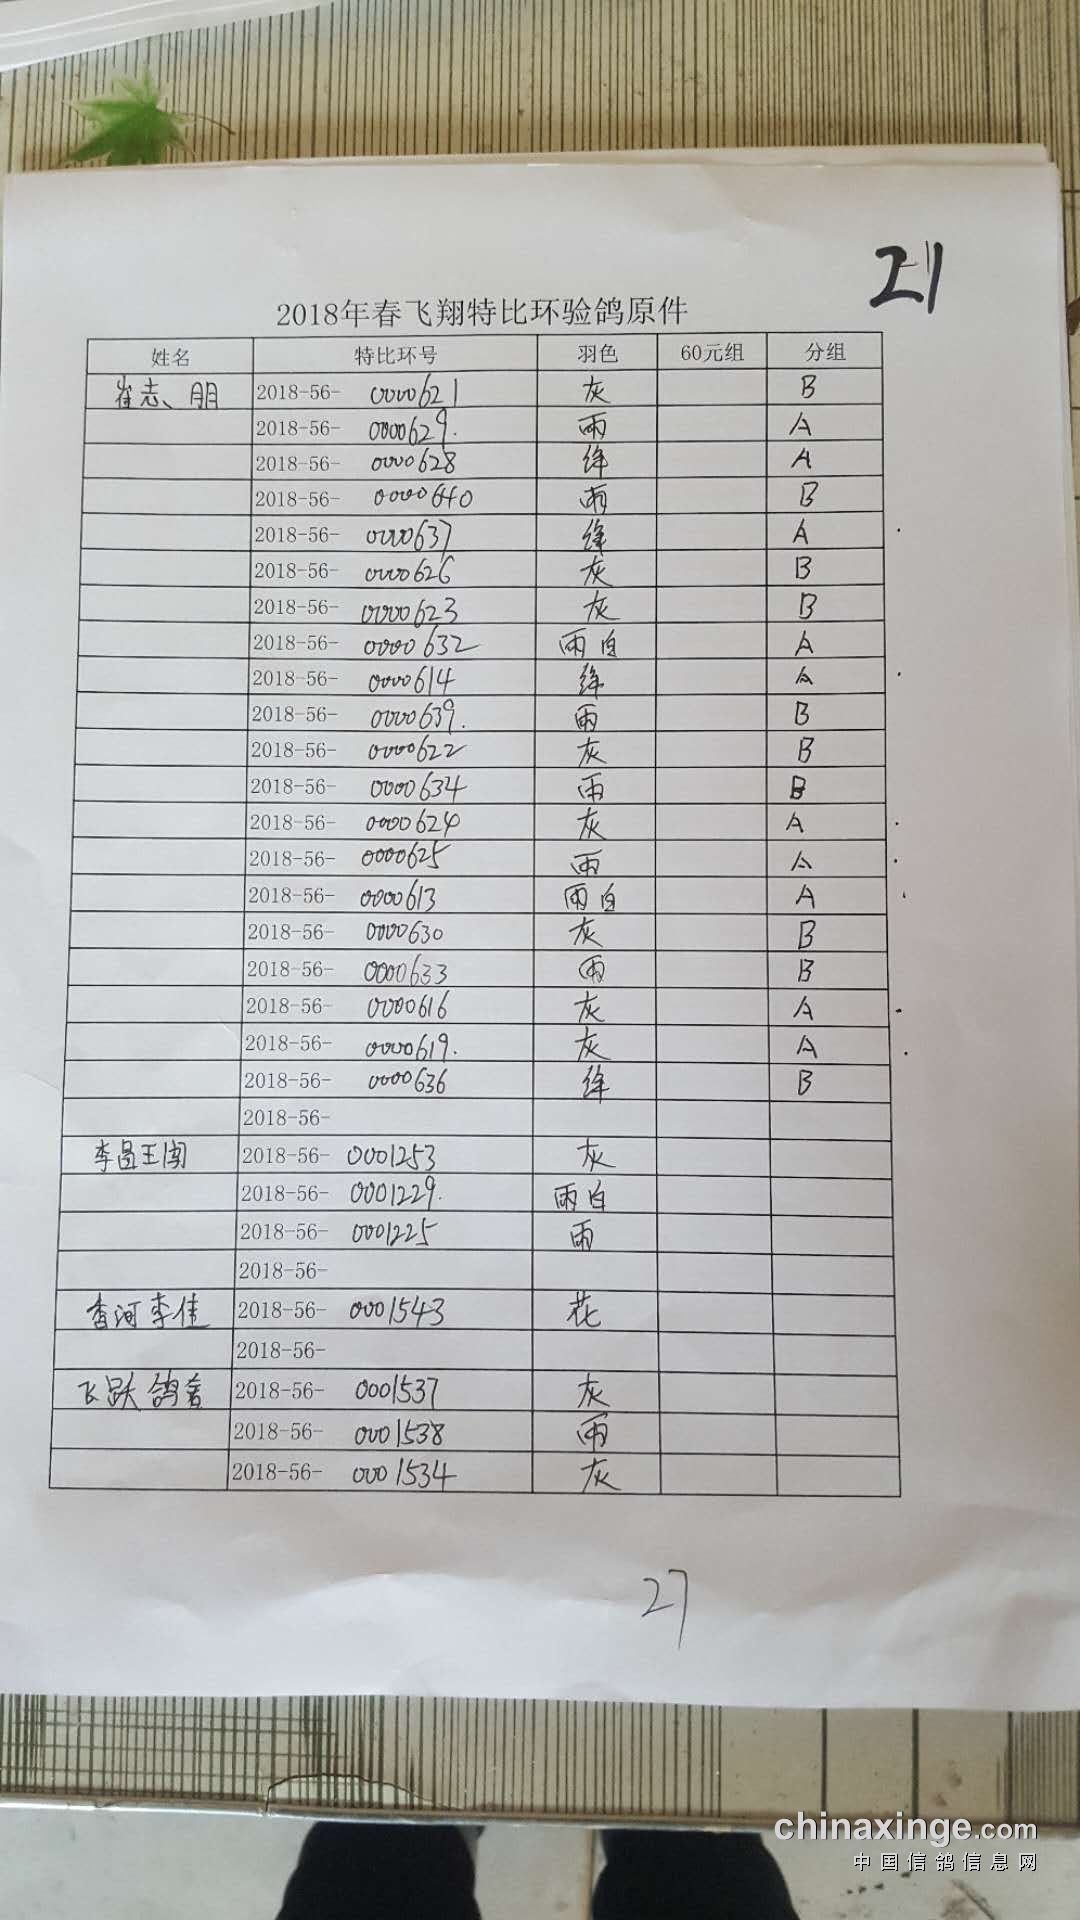 21
2018年春飞翔特比环验鸽原件
姓名 特比环号 羽色 60元组 分组
崔志、朋 2018-56- 0000621 灰 B
2018-56- 0000629. 雨 A
2018-56- 0000628 绛 A
2018-56- 0000640 雨 B
2018-56- 0000637 绛 A
2018-56- 0000626 灰 B
2018-56- 0000623 灰 B
2018-56- 0000632 雨白 A
2018-56- 0000614 绛 A
2018-56- 0000639. 雨 B
2018-56- 0000622 灰 B
2018-56- 0000634 雨 B
2018-56- 0000624 灰 A
2018-56- 0000625 雨 A
2018-56- 0000613 雨白 A
2018-56- 0000630 灰 B
2018-56- 0000633 雨 B
2018-56- 0000616 灰 A
2018-56- 0000619. 灰 A
2018-56- 0000636 绛 B
2018-56-
李昌王闯 2018-56- 0001253 灰
2018-56- 0001229. 雨白
2018-56- 0001225 雨
2018-56-
香河李佳 2018-56- 0001543 花
2018-56-
飞跃鸽舍 2018-56- 0001537 灰
2018-56- 0001538 雨
2018-56- 0001534 灰
27
chinaxinge.com
中国信鸽信息网